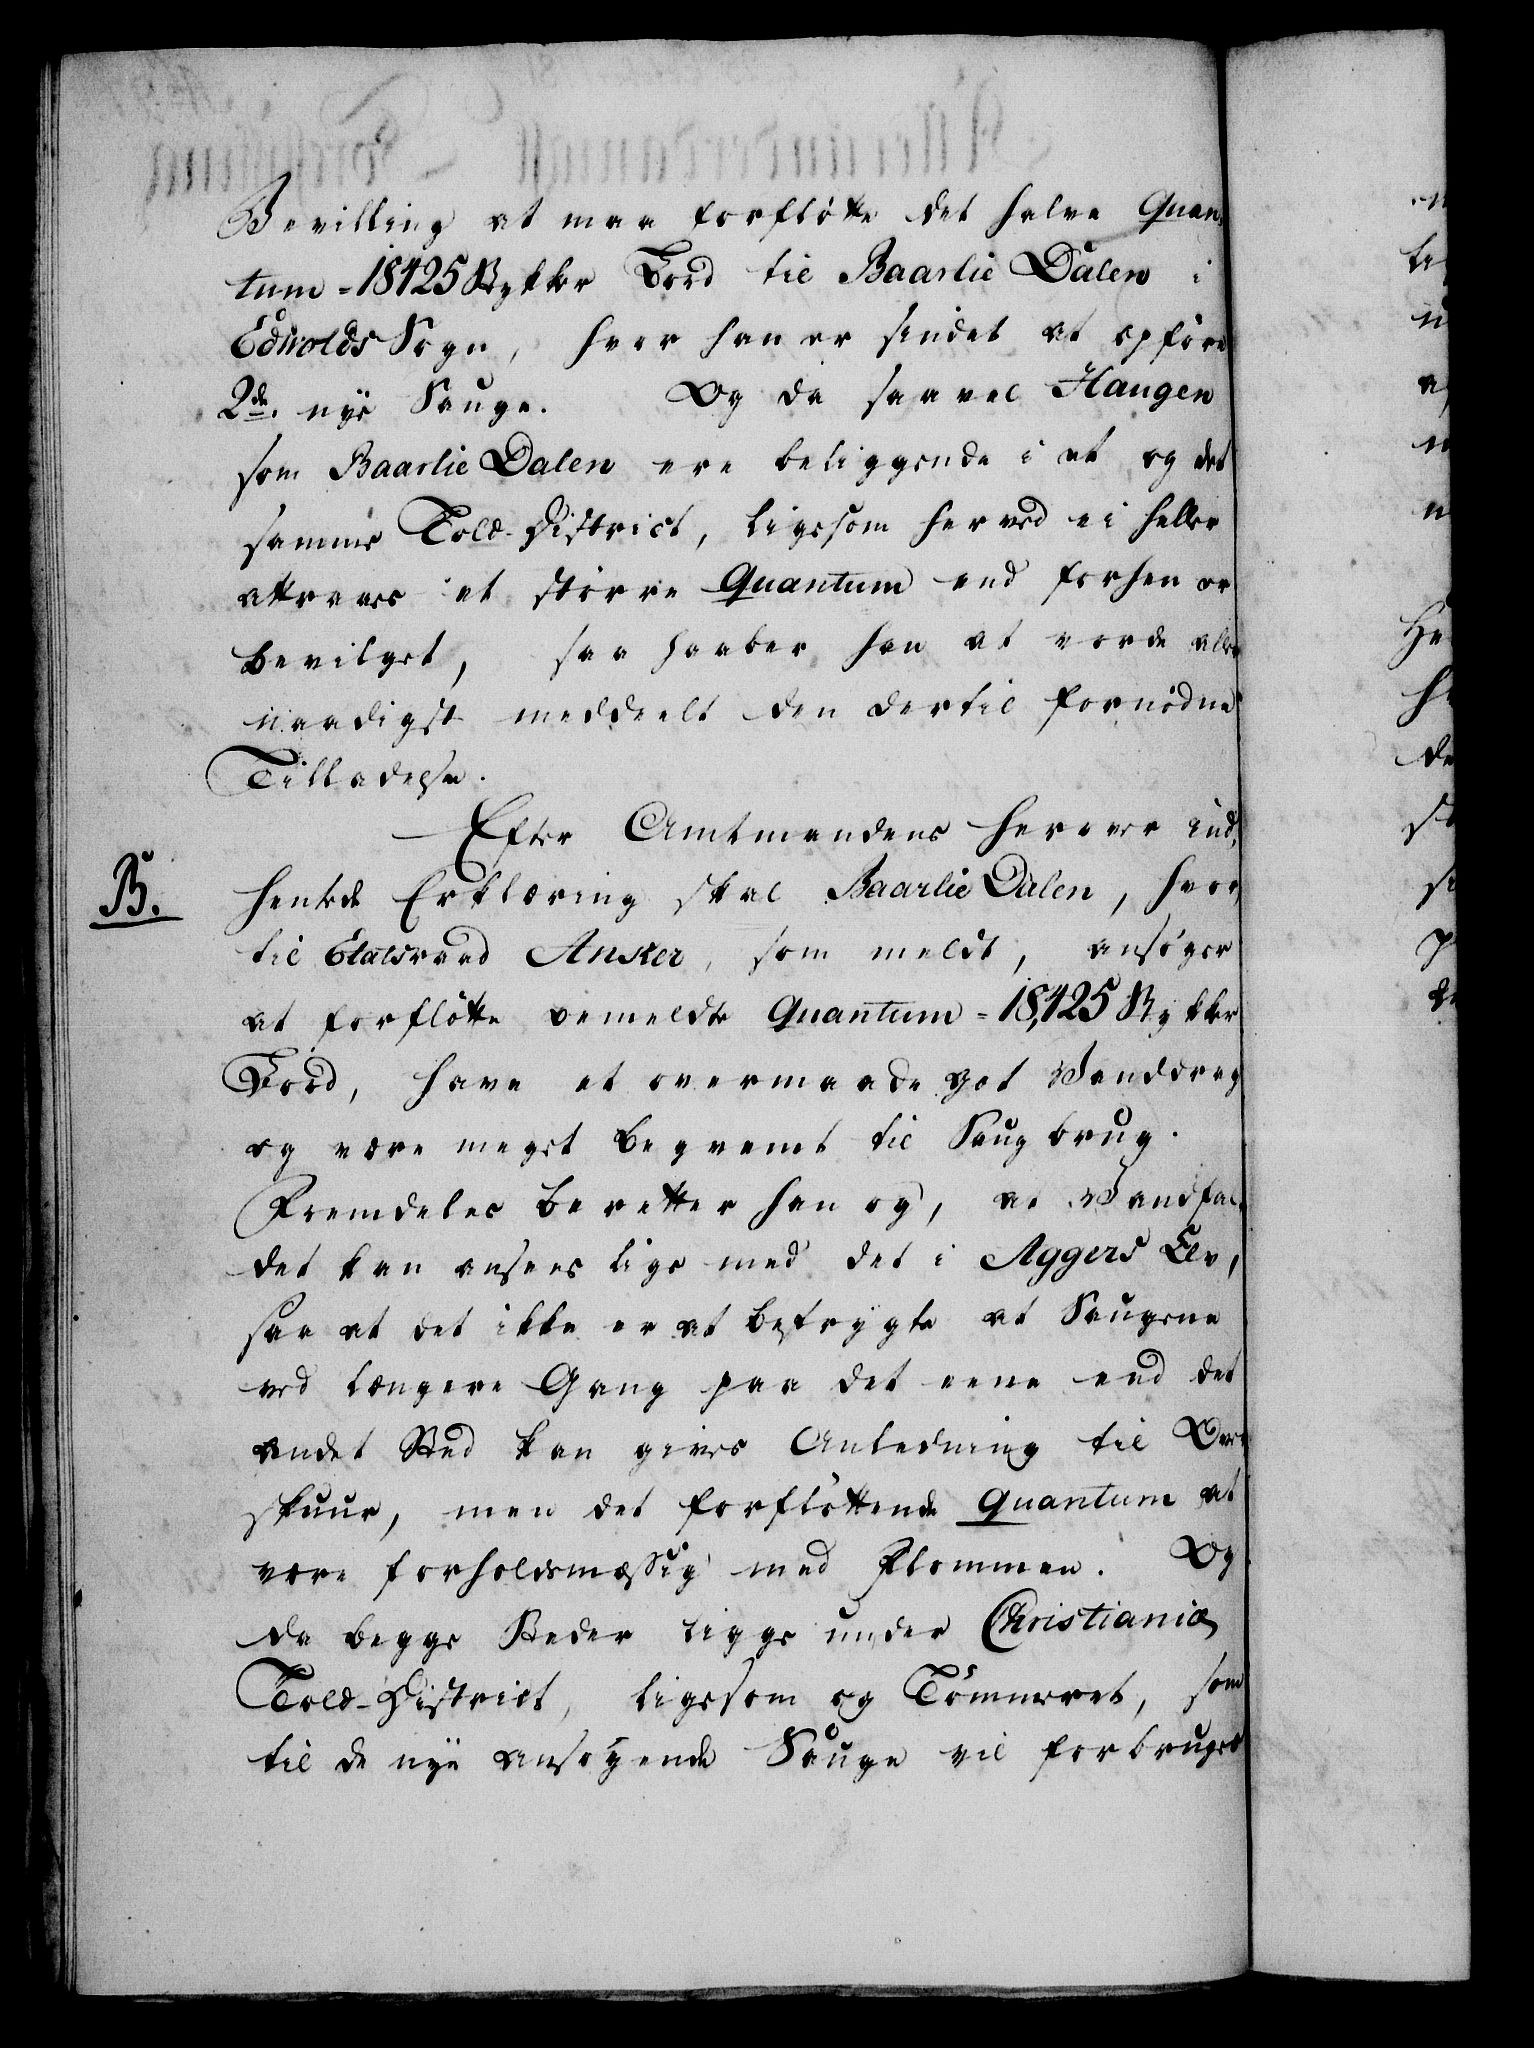 Bevilling at maa forflötte det halve Quan-
tum = 18425 Stykker Bord til Baarlie Dalen i
Edwolds Sogn, hvor han er sindet at opföre
2de. nye Sauge. Og da saavel Haugen
som Baarlie Dalen ere beliggende i et og det
samme Told-District, ligesom herved ei heller
attraaes et större Quantum end forhen er
bevilget, saa haaber han at vorde aller
naadigst meddeelt den dertil fornödne
Tilladelse.
Efter Amtmandens herover ind-
B. hentede Erklæring skal Baarlie Dalen, hvor
til Etatsraad Anker, som meldt, ansöger
at forflötte bemeldte Quantum = 18,425 Stykker
Bord, have et overmaade got Vanddrag
og være meget beqvemt til Saugbrug.
Fremdeles beretter han og, at Vandfal-
det kan ansees lige med det i Aggers Elv,
saa at det ikke er at befrygte at Saugene
ved længere Gang paa det eene end det
andet Sted kan gives Anledning til Over
skuur, men det forflöttende Quantum at
være forholdsmæssig med Flommen. Og
da begge Steder ligge under Christiania
Told-District, ligesom og Tömmeret, som
til de nye ansögende Sauge vil forbruges